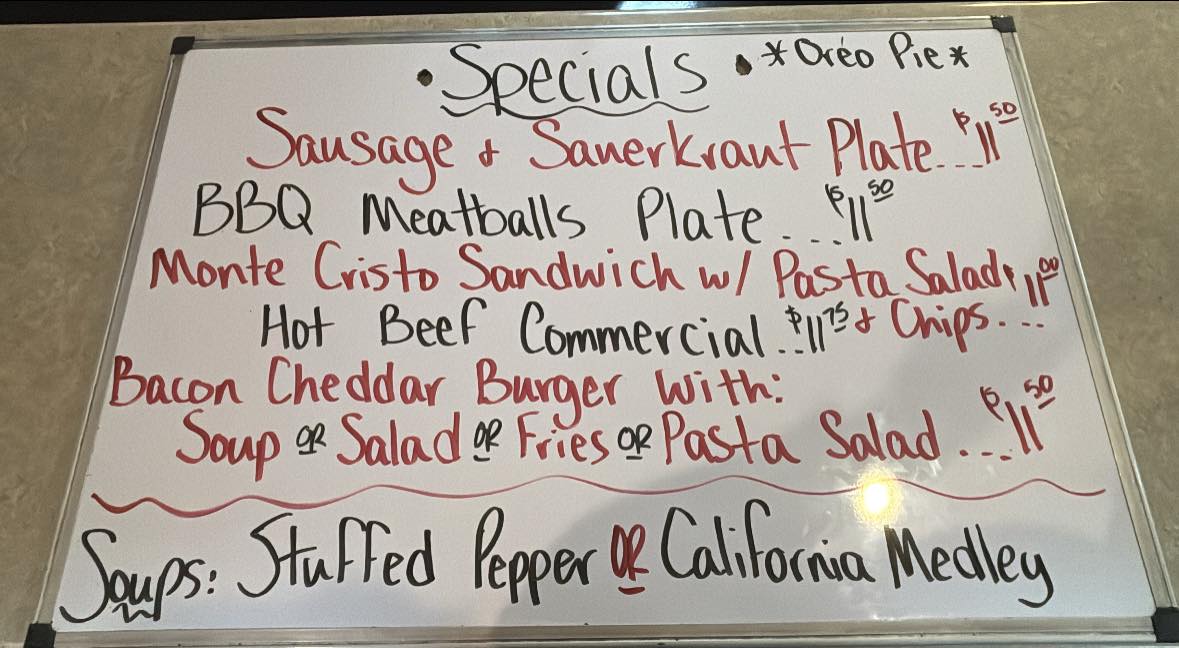 • Specials • *Oreo Pie*
Sausage & Sauerkraut Plate...$11.50
BBQ Meatballs Plate...$11.50
Monte Cristo Sandwich w/ Pasta Salad $11.00
Hot Beef Commercial..$11.75 & Chips...
Bacon Cheddar Burger With:
Soup OR Salad OR Fries OR Pasta Salad...$11.50
Soups: Stuffed Pepper OR California Medley